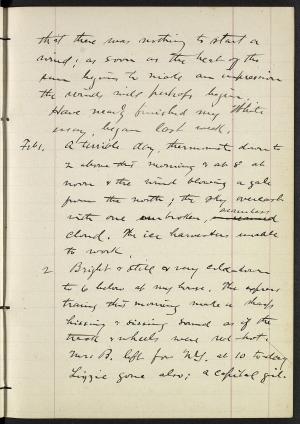 that there was nothing to start a
wind; as soon as the heat of the
sun begins to make an impression
the winds will perhaps begin.
Have nearly finished my White
essay, began last week.
Feb 1. A terrible day, thermometer down to
2 above this morning & at 8 at
noon & the wind blowing a gale
from the north; the sky overcast
with one unbroken, seamless
cloud. The ice harvesters unable
to work.
2 Bright & still & very cold down
to 6 below at my house. The express
trains this morning make a sharp
hissing & sissing sound as if the
track & wheels were red-hot.
Mrs B. left for N.Y. at 10 to-day
Lizzie gone also; a capital girl.